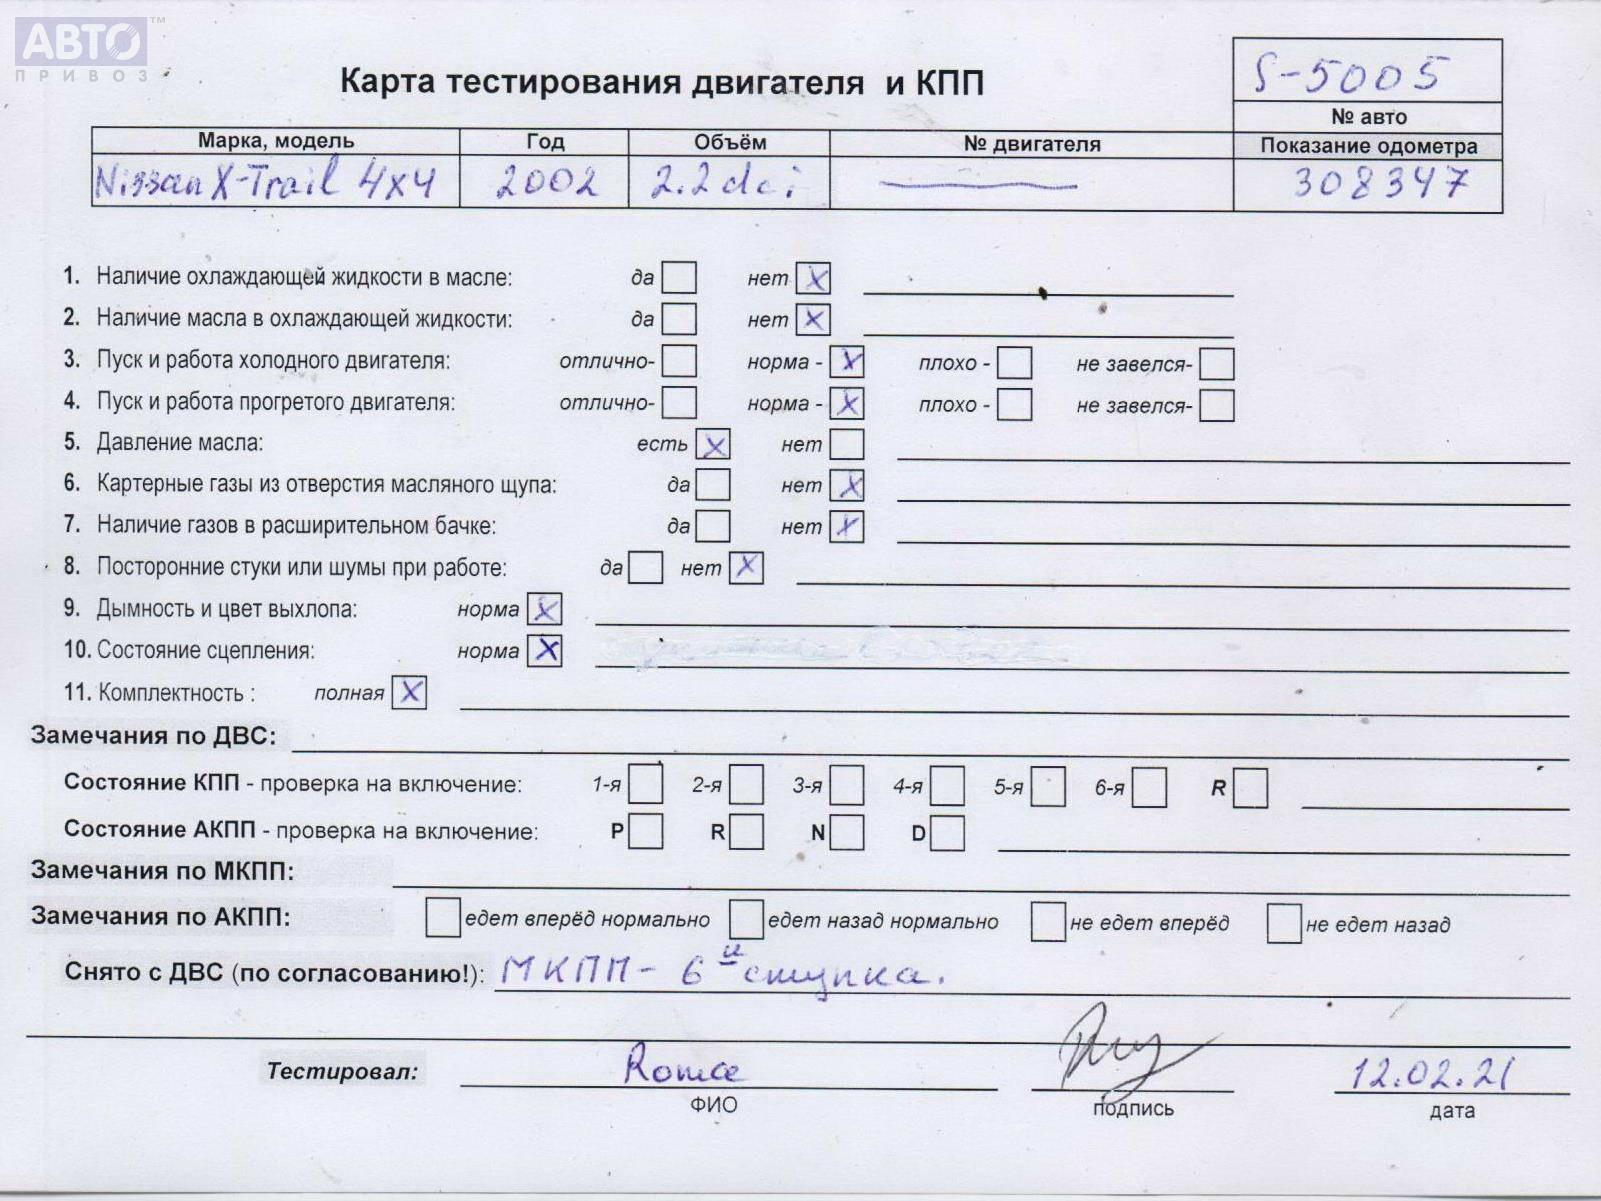 АВТО ™
ПРИВОЗ
Карта тестирования двигателя и КПП
S-5005
№ авто
Марка, модель Год Объём № двигателя Показание одометра
Nissan X-Trail 4x4 2002 2.2 dci — 308347
1. Наличие охлаждающей жидкости в масле: да нет X
2. Наличие масла в охлаждающей жидкости: да нет X
3. Пуск и работа холодного двигателя: отлично- норма - X плохо - не завелся-
4. Пуск и работа прогретого двигателя: отлично- норма - X плохо - не завелся-
5. Давление масла: есть X нет
6. Картерные газы из отверстия масляного щупа: да нет X
7. Наличие газов в расширительном бачке: да нет X
8. Посторонние стуки или шумы при работе: да нет X
9. Дымность и цвет выхлопа: норма X
10. Состояние сцепления: норма X
11. Комплектность : полная X
Замечания по ДВС:
Состояние КПП - проверка на включение: 1-я 2-я 3-я 4-я 5-я 6-я R
Состояние АКПП - проверка на включение: P R N D
Замечания по МКПП:
Замечания по АКПП: едет вперёд нормально едет назад нормально не едет вперёд не едет назад
Снято с ДВС (по согласованию!): МКПП - 6и ступка.
Тестировал: 12.02.21
ФИО подпись дата